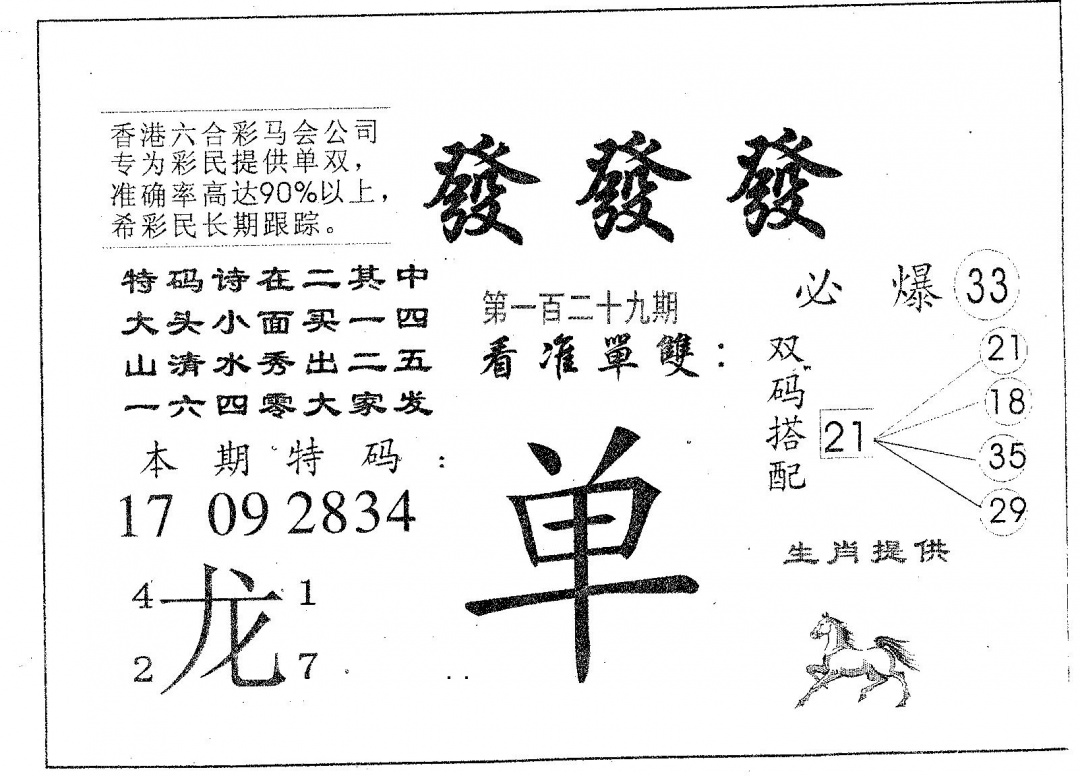 香港六合彩马会公司
专为彩民提供单双，
准确率高达90%以上，
希彩民长期跟踪。
發 發 發
特码诗在二其中
大头小面买一四
山清水秀出二五
一六四零大家发
本期特码：
17 09 2834
4 龙 1
2 7
第一百二十九期
看准單雙：
单
必爆 33
双码搭配
21
21
18
35
29
生肖提供